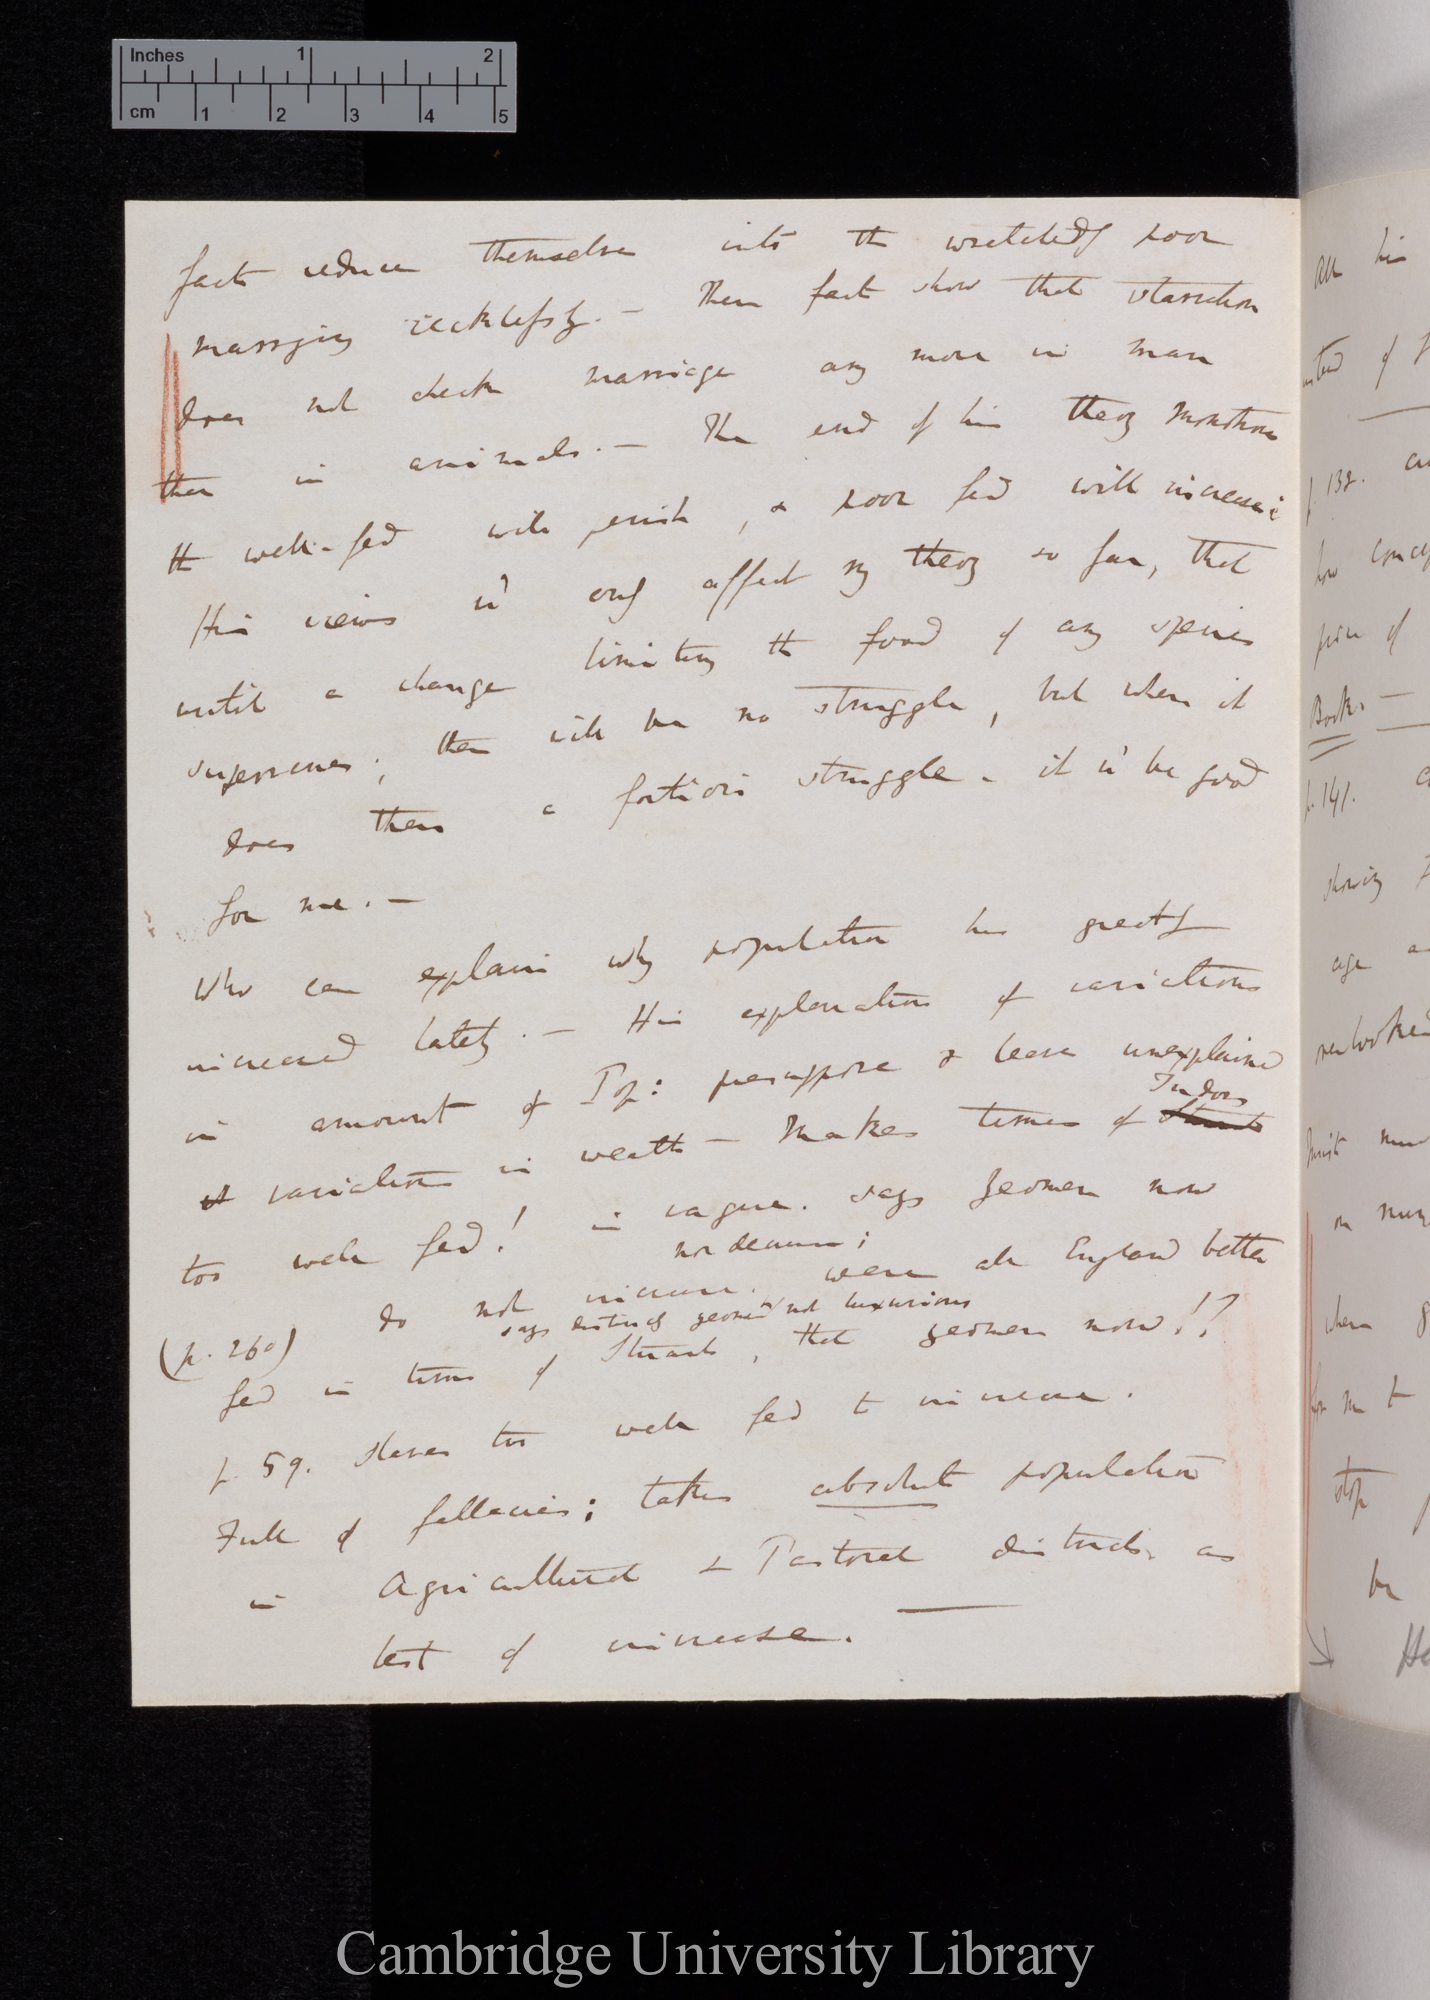 Inches 1 2
cm 1 2 3 4 5
facts reduce themselves into the wretchedly poor
marrying recklessly. — These facts show that starvation
does not check marriage any more in man
than in animals. — The end of his theory monstrous
the well-fed will perish, & poor fed will increase:
His views wd only affect my theory so far, that
until a change limiting the food of any species
supervenes; there will be no struggle, but when it
does then a fortiori struggle. it wd be good
for me. —
Who can explain why population has greatly
increased lately. — His explanation of variations
in amount of Pop: presuppose & leave unexplained
Tudors
variation in wealth — Makes times of Stuarts
too well fed! is vague. says yeomen now
nor decrease;
do not increase. were all England better
(p. 260) says distinctly yeomen not luxurious
fed in times of Stuarts, than yeomen now!?
p. 59. Slaves too well fed to increase.
Full of fallacies; takes absolute population
in Agricultural & Pastoral districts as
test of increase.
All his
instead of
p. 132.
how
price of
Books —
p. 141.
showing
age
overlooked
must
on
when
for me to
stop
be
Cambridge University Library